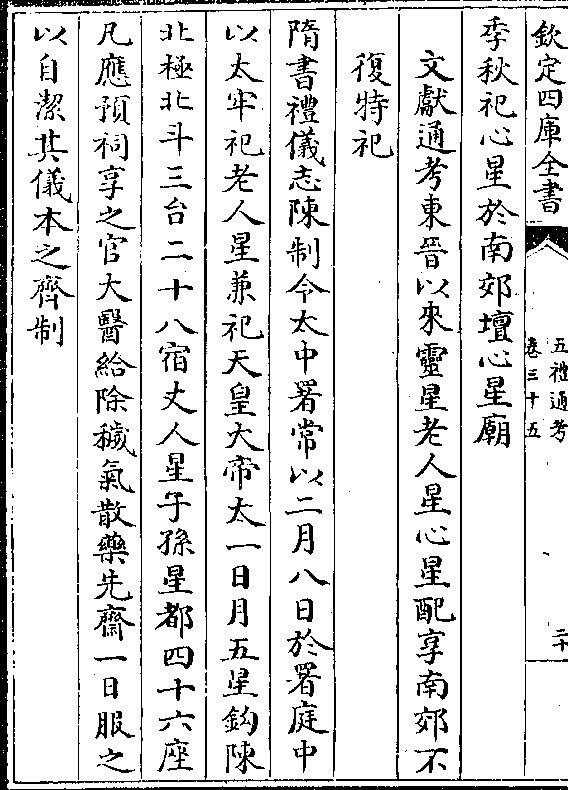 欽定四庫全書
五禮通考
卷三十五
二十
季秋祀心星於南郊壇心星廟
文獻通考東晉以來靈星老人星心星配享南郊不
復特祀
隋書禮儀志陳制令太中署常以二月八日於署庭中
以太牢祀老人星兼祀天皇大帝太一日月五星鈎陳
北極北斗三台二十八宿丈人星子孫星都四十六座
凡應預祠享之官大醫給除穢氣散藥先齋一日服之
以自潔其儀本之齊制